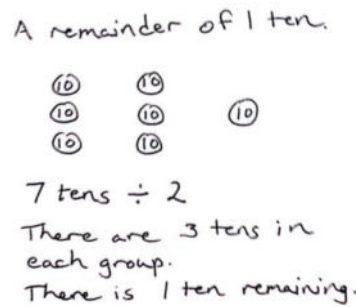 A remainder of 1 ten.
10 10
10 10 10
10 10
7 tens ÷ 2
There are 3 tens in
each group.
There is 1 ten remaining.